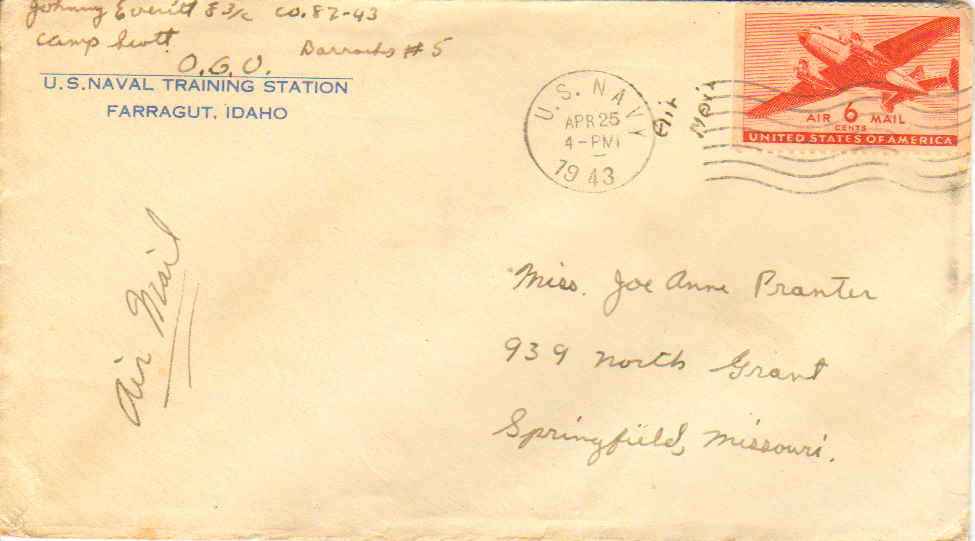 Johnny Everitt S 3/c Co. 82-43
Camp Scott Barracks # 5
O.G.U.
U.S. NAVAL TRAINING STATION
FARRAGUT, IDAHO
U.S. NAVY
APR 25
4-PM
1943
Air Mail
AIR 6 MAIL
CENTS
UNITED STATES OF AMERICA
Air Mail
Miss. Joe Anne Pranter
939 North Grant
Springfield, Missouri.